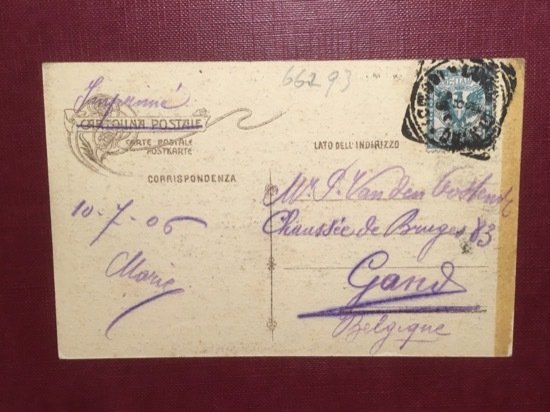 66293
Imprimé
CARTOLINA POSTALE
CARTE POSTALE
POSTKARTE
LATO DELL'INDIRIZZO
CORRISPONDENZA
Mr. P. Van den
Chaussée de Bruges 83
Gand
Belgique
10-7-06
Marie